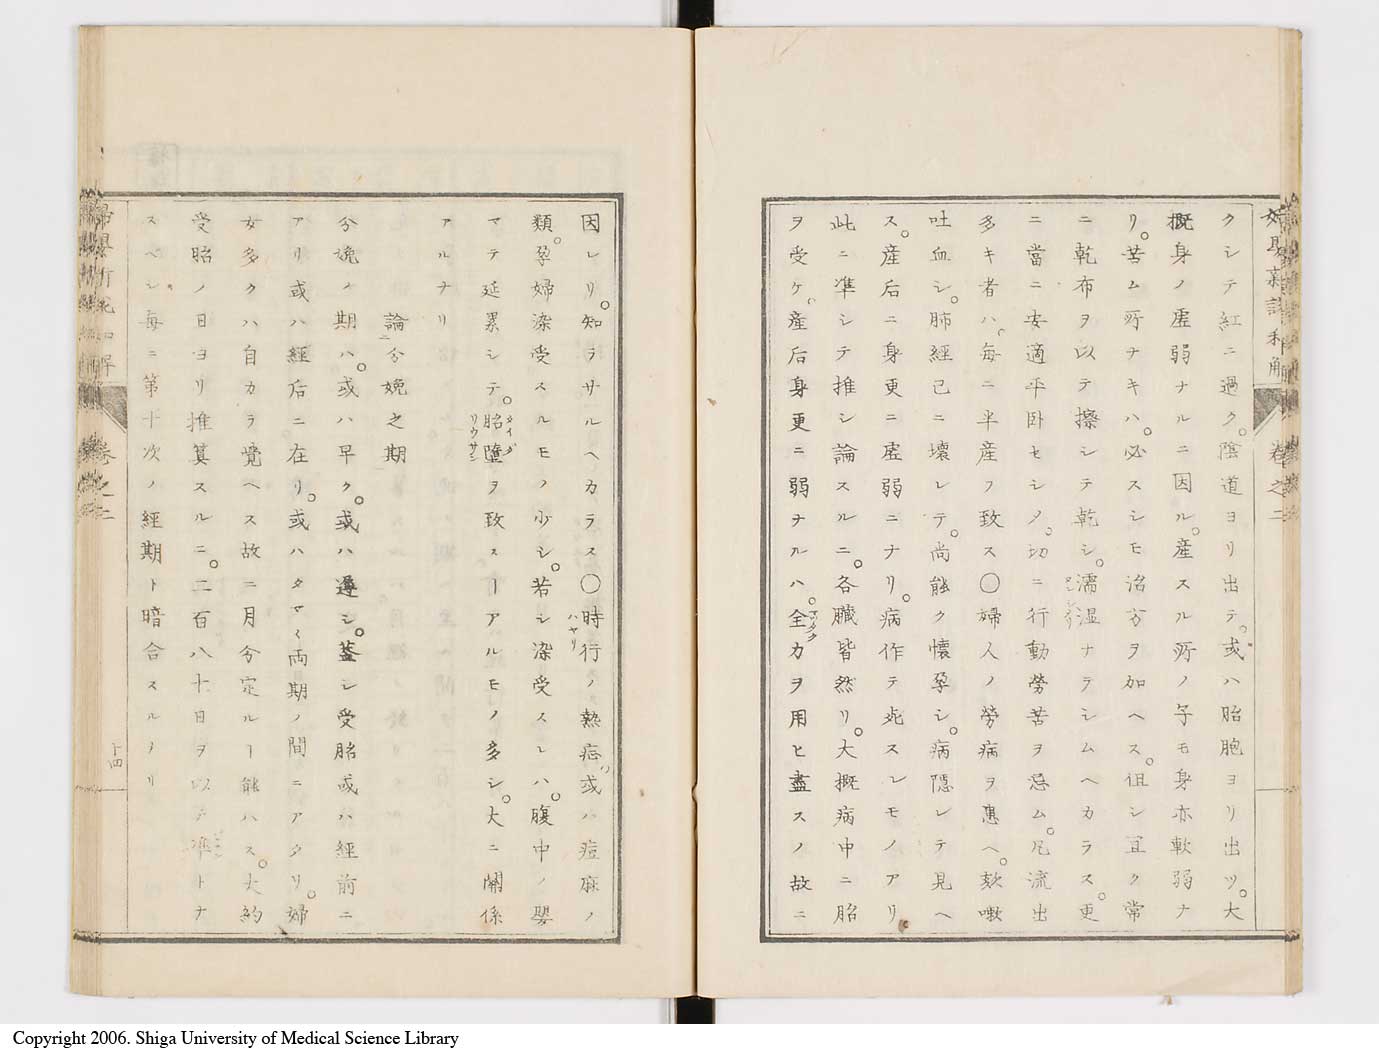 クシテ紅ニ過ク。陰道ヨリ出テ。或ハ胎胞ヨリ出ツ。大
概身ノ虚弱ナルニ因ル。産スル所ノ子モ身亦軟弱ナ
リ。苦ム所ナキハ。必スシモ治方ヲ加ヘス。但シ宜ク常
ニ乾布ヲ以テ擦シテ乾シ。濡湿ナラシムヘカラス。更
ニ當ニ安適平卧セシメ。切ニ行動勞苦ヲ忌ム。凡流出
多キ者ハ。毎ニ半産ヲ致ス〇婦人ノ勞病ヲ患ヘ。欬嗽
吐血シ。肺經已ニ壊レテ。尚能ク懐孕シ。病隠レテ見ヘ
ス。産后ニ身更ニ虚弱ニナリ。病作テ死スルモノアリ
此ニ準シテ推シ論スルニ。各臓皆然リ。大概病中ニ胎
ヲ受ケ。産后身更ニ弱ヲナルハ。全カヲ用ヒ盡スノ故ニ
マツタク
巻之二
因レリ。知ラサルヘカラス〇時行ノ熱症。或ハ痘麻ノ
ハヤリ
類。孕婦染受スルモノ少シ。若シ染受スレハ。腹中ノ嬰
マテ延累シテ。胎墮ヲ致スヿアルモノ多シ。大ニ關係
タイダ
リウサン
アルナリ
論分娩之期
分娩ノ期ハ。或ハ早ク。或ハ遲シ。蓋シ受胎或ハ經前ニ
アリ或ハ經后ニ在リ。或ハタマ〻両期ノ間ニアタリ。婦
女多クハ自カラ覺ヘス故ニ月分定ルヿ能ハス。大約
受胎ノ日ヨリ推算スルニ。二百八十日ヲ以テ準トナ
スヘシ毎ニ第十次ノ經期ト暗合スルヲリ
十四
Copyright 2006. Shiga University of Medical Science Library